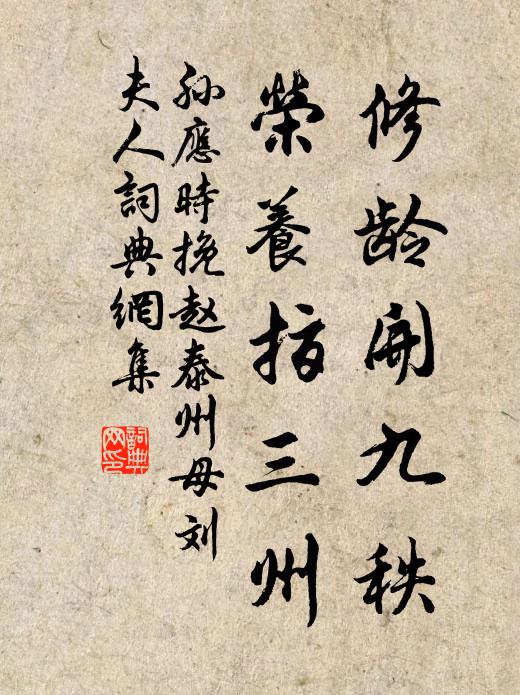 修龄開九秩
榮養指三州
孙應時挽赵泰州母刘
夫人詞典網集
詞典網印